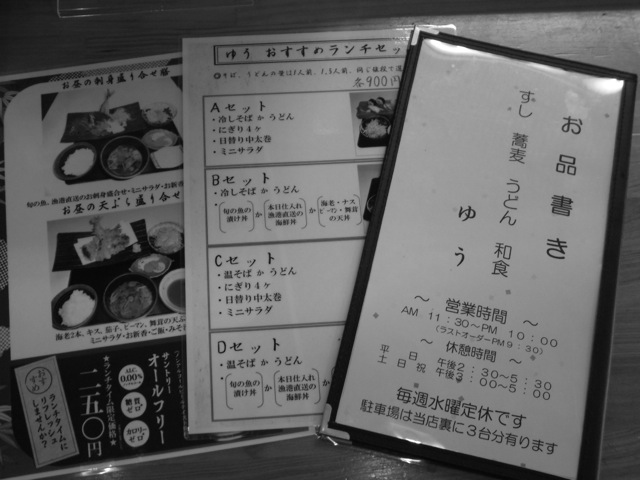 お昼の刺身盛り合せ膳
旬の魚、漁港直送のお刺身盛合せ・ミニサラダ・お新香
お昼の天ぷら盛り合せ
海老2本、キス、茄子、ピーマン、舞茸の天ぷ
ミニサラダ・お新香・ご飯・みそ
おすすめ
ランチタイムに
リフレッシュ
しませんか?
サントリー
オールフリー
ALC.
0.00%
糖質
ゼロ
カロリー
ゼロ
★ランチタイム限定価格★
二五〇円
ゆう おすすめのランチセッ
各900円
Aセット
・冷しそば か うどん
・にぎり4ヶ
・日替り中太巻
・ミニサラダ
Bセット
・冷しそば か うどん
・旬の魚の漬け丼 か 本日仕入れ漁港直送の海鮮丼 か 海老・ナスピーマン・舞茸の天丼
Cセット
・温そば か うどん
・にぎり4ヶ
・日替り中太巻
・ミニサラダ
Dセット
・温そば か うどん
・旬の魚の漬け丼 か 本日仕入れ漁港直送の海鮮丼 か
お品書き
すし 蕎麦 うどん 和食
ゆう
～ 営業時間 ～
AM 11:30～PM 10:00
(ラストオーダーPM9:30)
～ 休憩時間 ～
平日 午後2:30～5:30
土日祝 午後3:00～5:00
毎週水曜定休です
駐車場は当店裏に3台分有ります